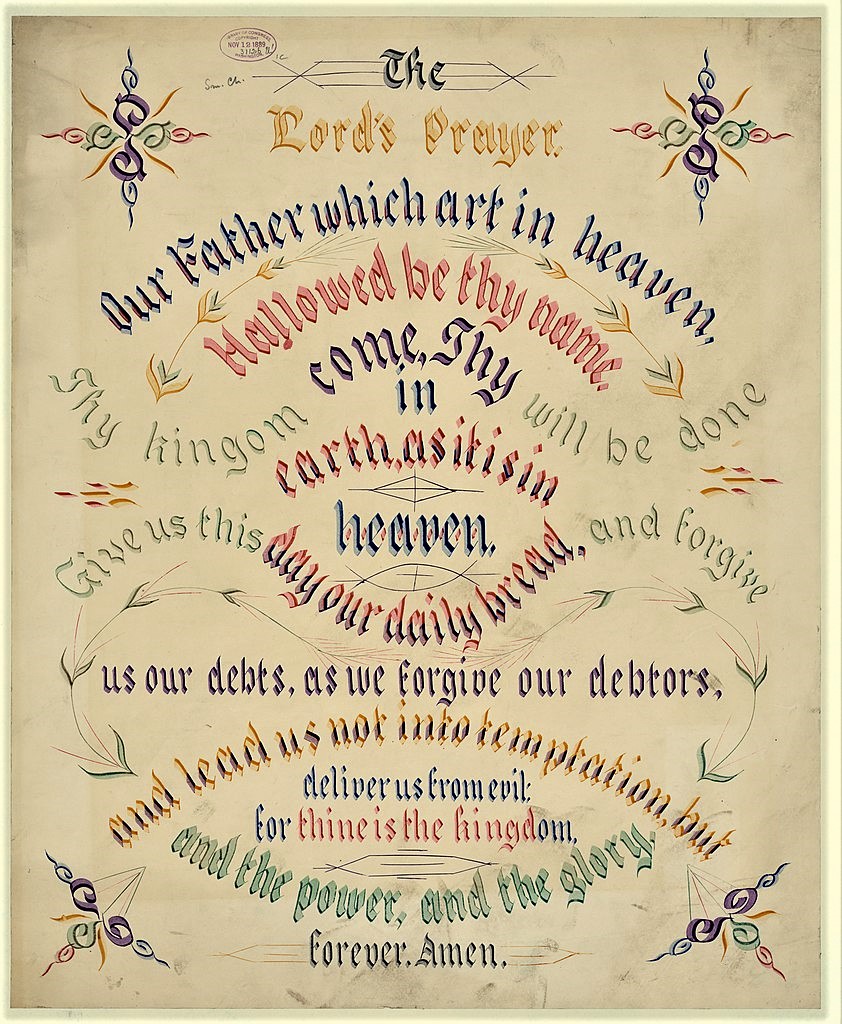 LIBRARY OF CONGRESS
COPYRIGHT
NOV 12 1889
WASHINGTON
Sm. Ch.
The
Lord's Prayer.
Our Father which art in heaven,
Hallowed be thy name.
Thy kingom come, Thy will be done
in
earth, as it is in
heaven.
Give us this day our daily bread, and forgive
us our debts, as we forgive our debtors,
and lead us not into temptation, but
deliver us from evil:
for thine is the kingdom,
and the power, and the glory.
forever. Amen.